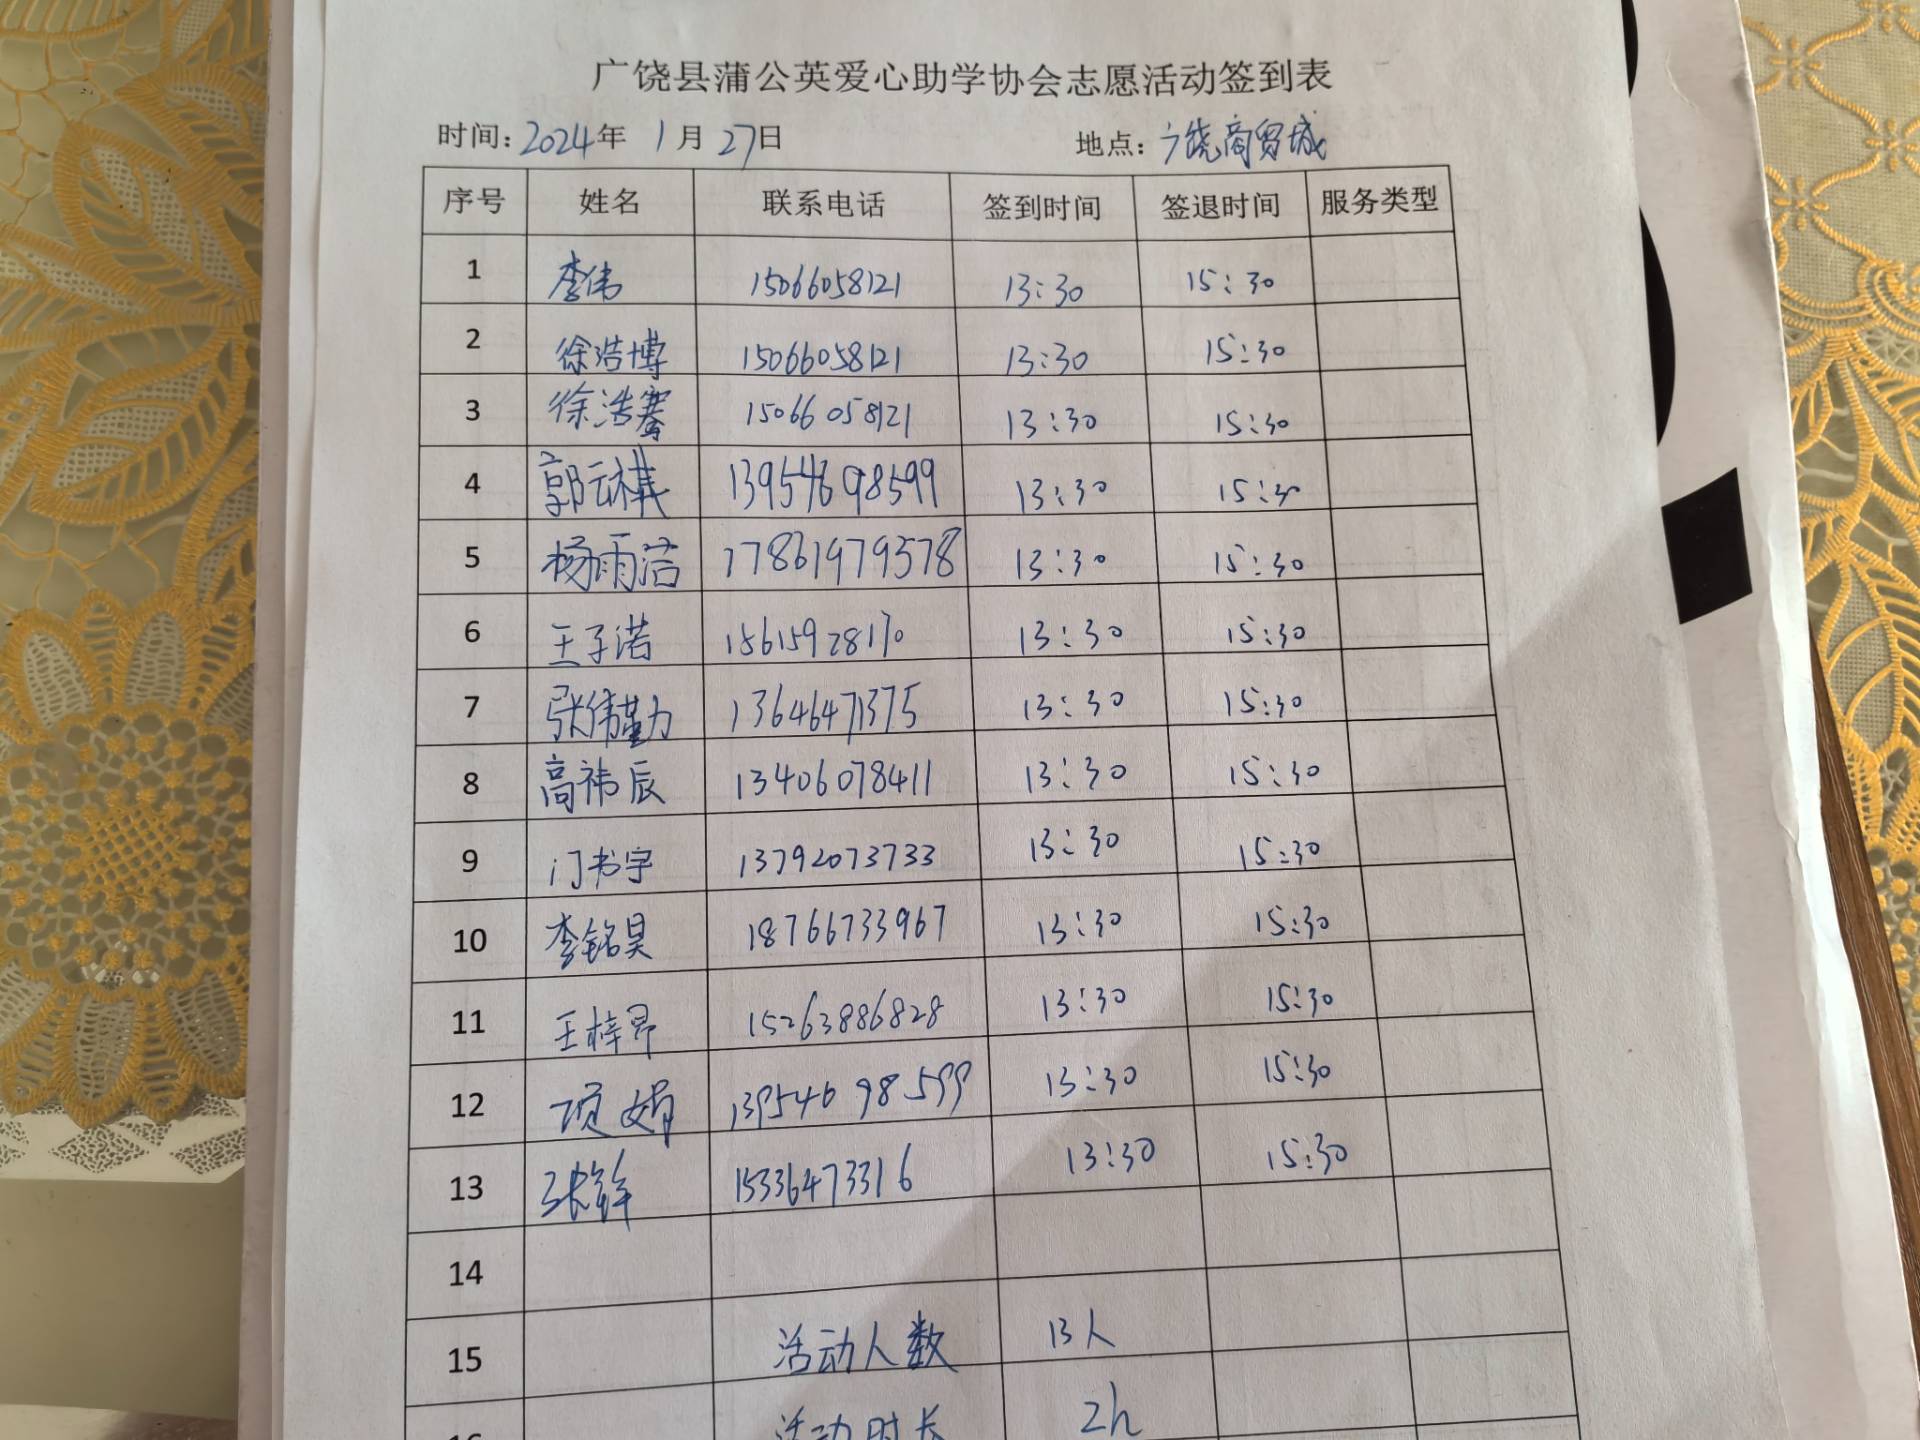 广饶县蒲公英爱心助学协会志愿活动签到表
时间：2024年 1月 27日 地点：广饶商贸城
序号 姓名 联系电话 签到时间 签退时间 服务类型
1 李伟 15066058121 13:30 15:30
2 徐浩博 15066058121 13:30 15:30
3 徐浩骞 15066058121 13:30 15:30
4 郭云祺 13954698599 13:30 15:30
5 杨雨洁 17861979578 13:30 15:30
6 王子诺 15615928170 13:30 15:30
7 张伟勤 13646471375 13:30 15:30
8 高祎辰 13406078411 13:30 15:30
9 门书宇 13792073733 13:30 15:30
10 李铭昊 18766733967 13:30 15:30
11 王梓昂 15263886828 13:30 15:30
12 项娟 13954698599 13:30 15:30
13 张 15336473316 13:30 15:30
14
15 活动人数 13人
16 活动时长 2h